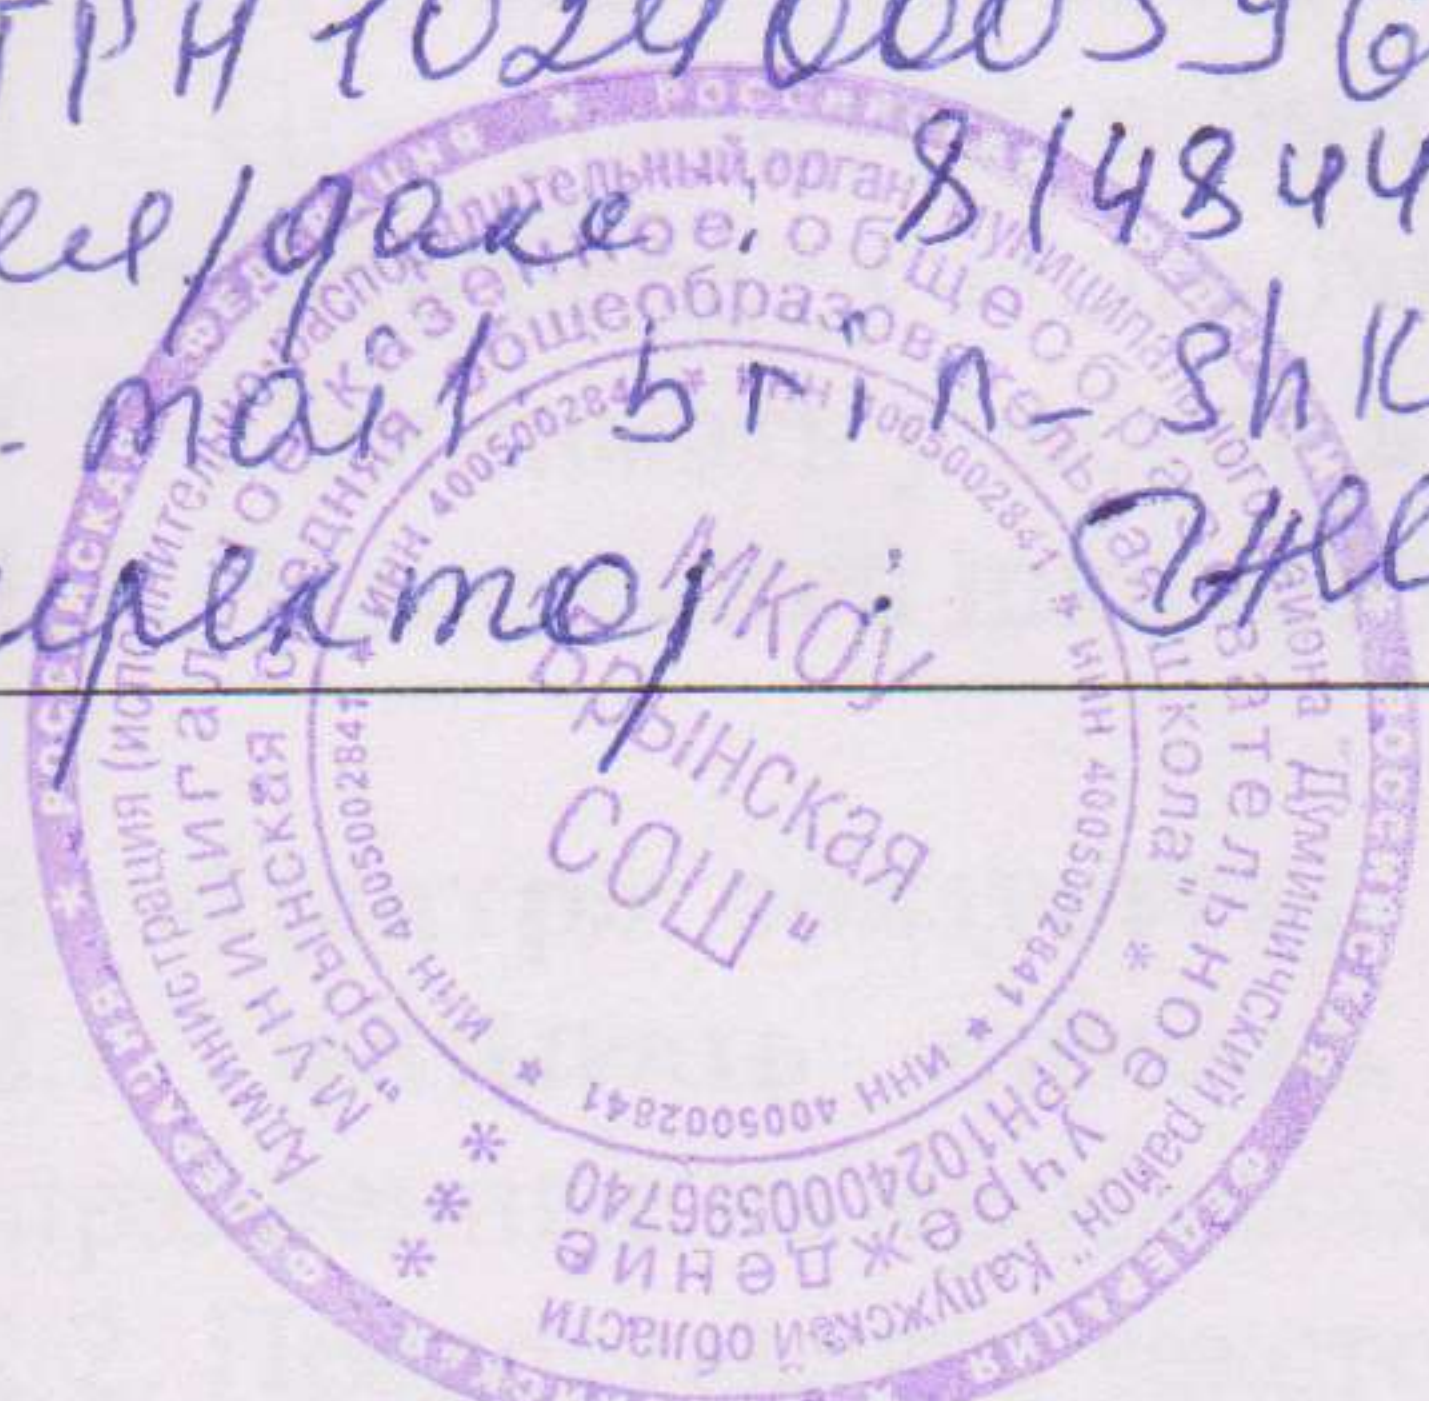 ГРН 1024000596
тел/факс: 8/48444
- mail, brin-shk
директор:
РОССИЙСКАЯ ФЕДЕРАЦИЯ * РОССИЙСКАЯ ФЕДЕРАЦИЯ * РОССИЙСКАЯ ФЕДЕРАЦИЯ * РОССИЙСКАЯ ФЕДЕРАЦИЯ *
Администрация (исполнительно-распорядительный орган) муниципального района "Думиничский район" Калужской области *
Муниципальное казенное общеобразовательное учреждение *
"Брынская средняя общеобразовательная школа" * ОГРН1024000596740 *
ИНН 4005002841 * ИНН 4005002841 * ИНН 4005002841 * ИНН 4005002841 * ИНН 4005002841 * ИНН 4005002841 *
МКОУ
"Брынская
СОШ"